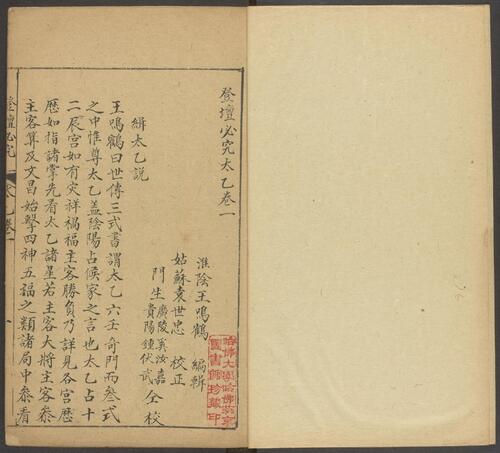 登壇必究太乙卷一
淮陰王鳴鶴 編輯
姑蘇袁世忠 校正
門生廣陵奚汝嘉
貴陽鍾伏武 仝校
緝太乙説
王鳴鶴曰世傳三式書謂太乙六壬奇門而叅式
之中惟尊太乙盖陰陽占候家之言也太乙占十
二辰宫如有灾祥禍福主客勝負乃詳見各宫歴
歴如指諸掌先看太乙諸星若主客大將主客叅
主客算及文昌始擊四神五福之類諸局中叅看
登壇必究
太乙卷一
一
哈佛大學哈佛燕京
圖書館珍藏印